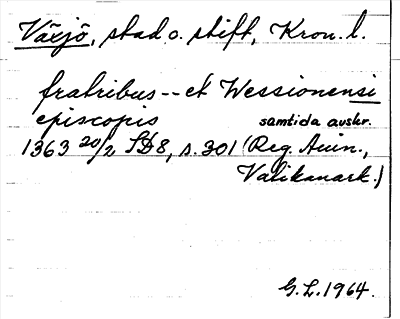 Växjö, stad o. stift, Kron. l.
fratribus -- et Wessionensi
episcopis samtida avskr.
1363 20/2 SD8, s. 301 (Reg. Avin.,
Vatikanark.)
G. L. 1964.